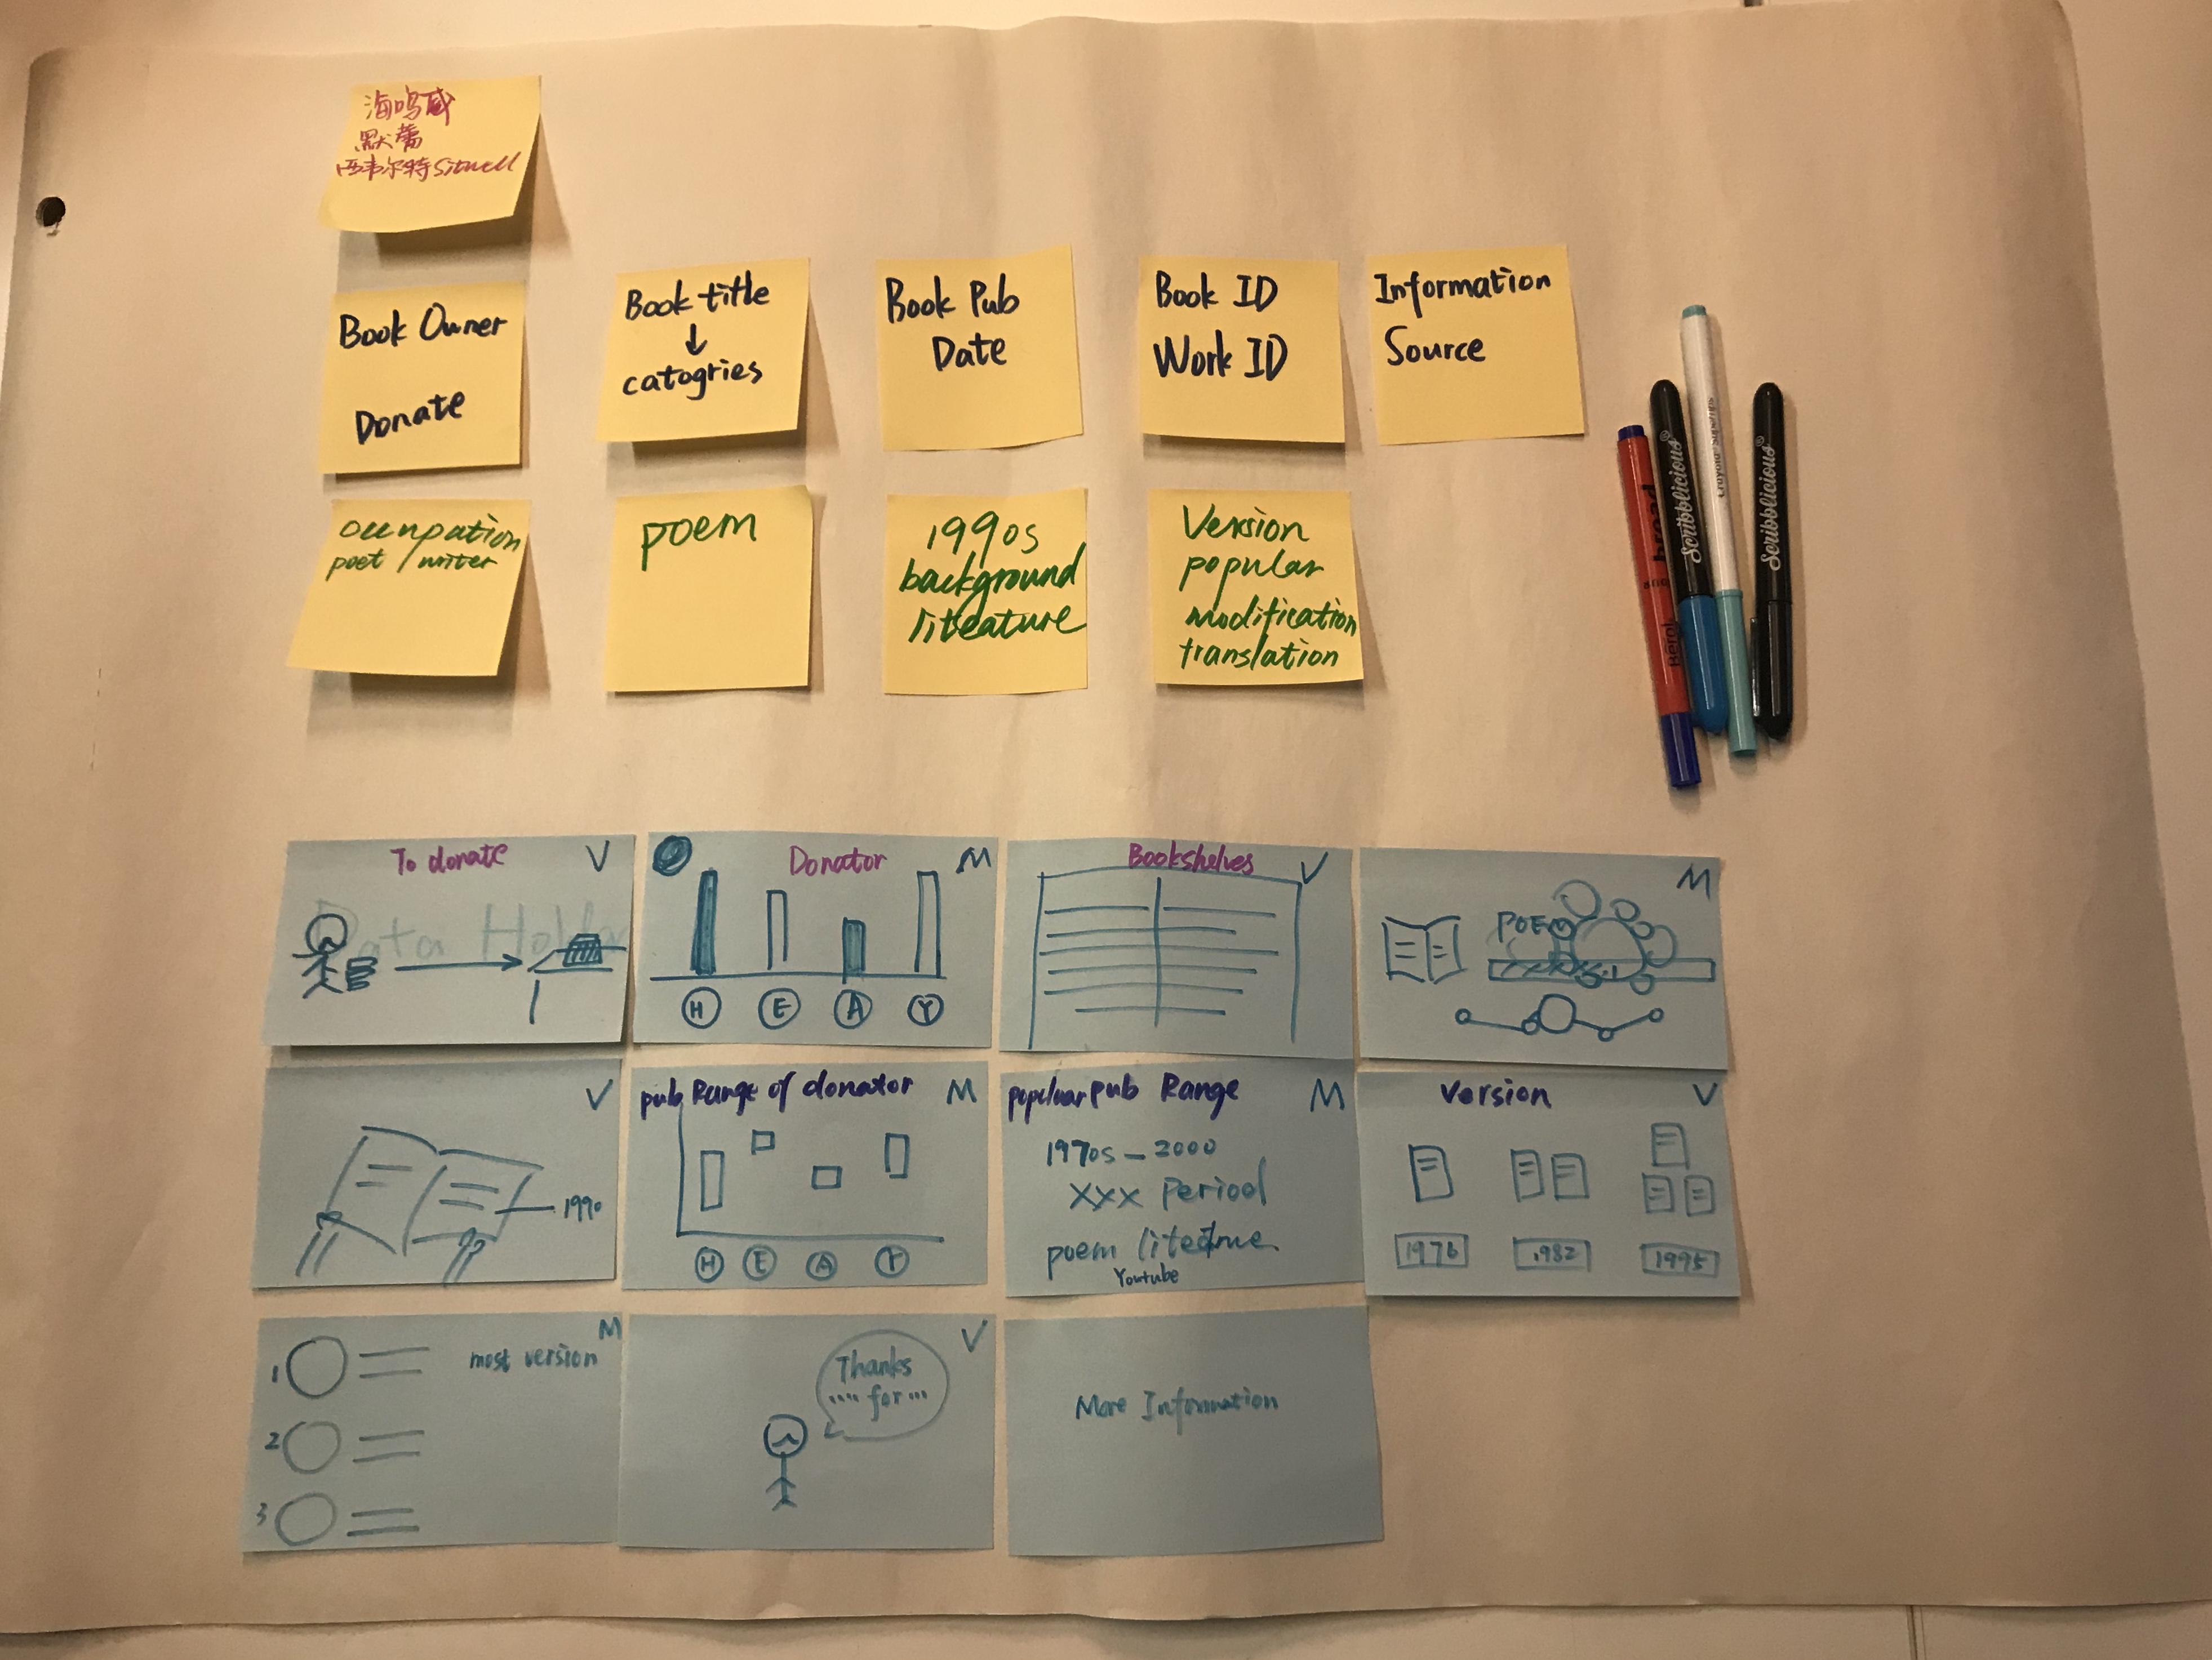 海鸣威
默蕾
西韦尔特 Sitwell
Book Owner
Donate
Book title
↓
catogries
Book Pub
Date
Book ID
Work ID
Information
Source
poet / writer
poem
1990s
background
Version
popular
modification
translation
Scribblicious
Scribblicious
broad
Berol
To donate V
Donator M
H E A Y
Bookshelves V
M
POEM
V
1990
pub Range of donator M
H E A Y
popular pub Range M
1970s - 2000
xxx Period
poem
Youtube
Version V
1976 1982 1995
M
most version
1
2
3
V
Thanks
.... for ...
More Information